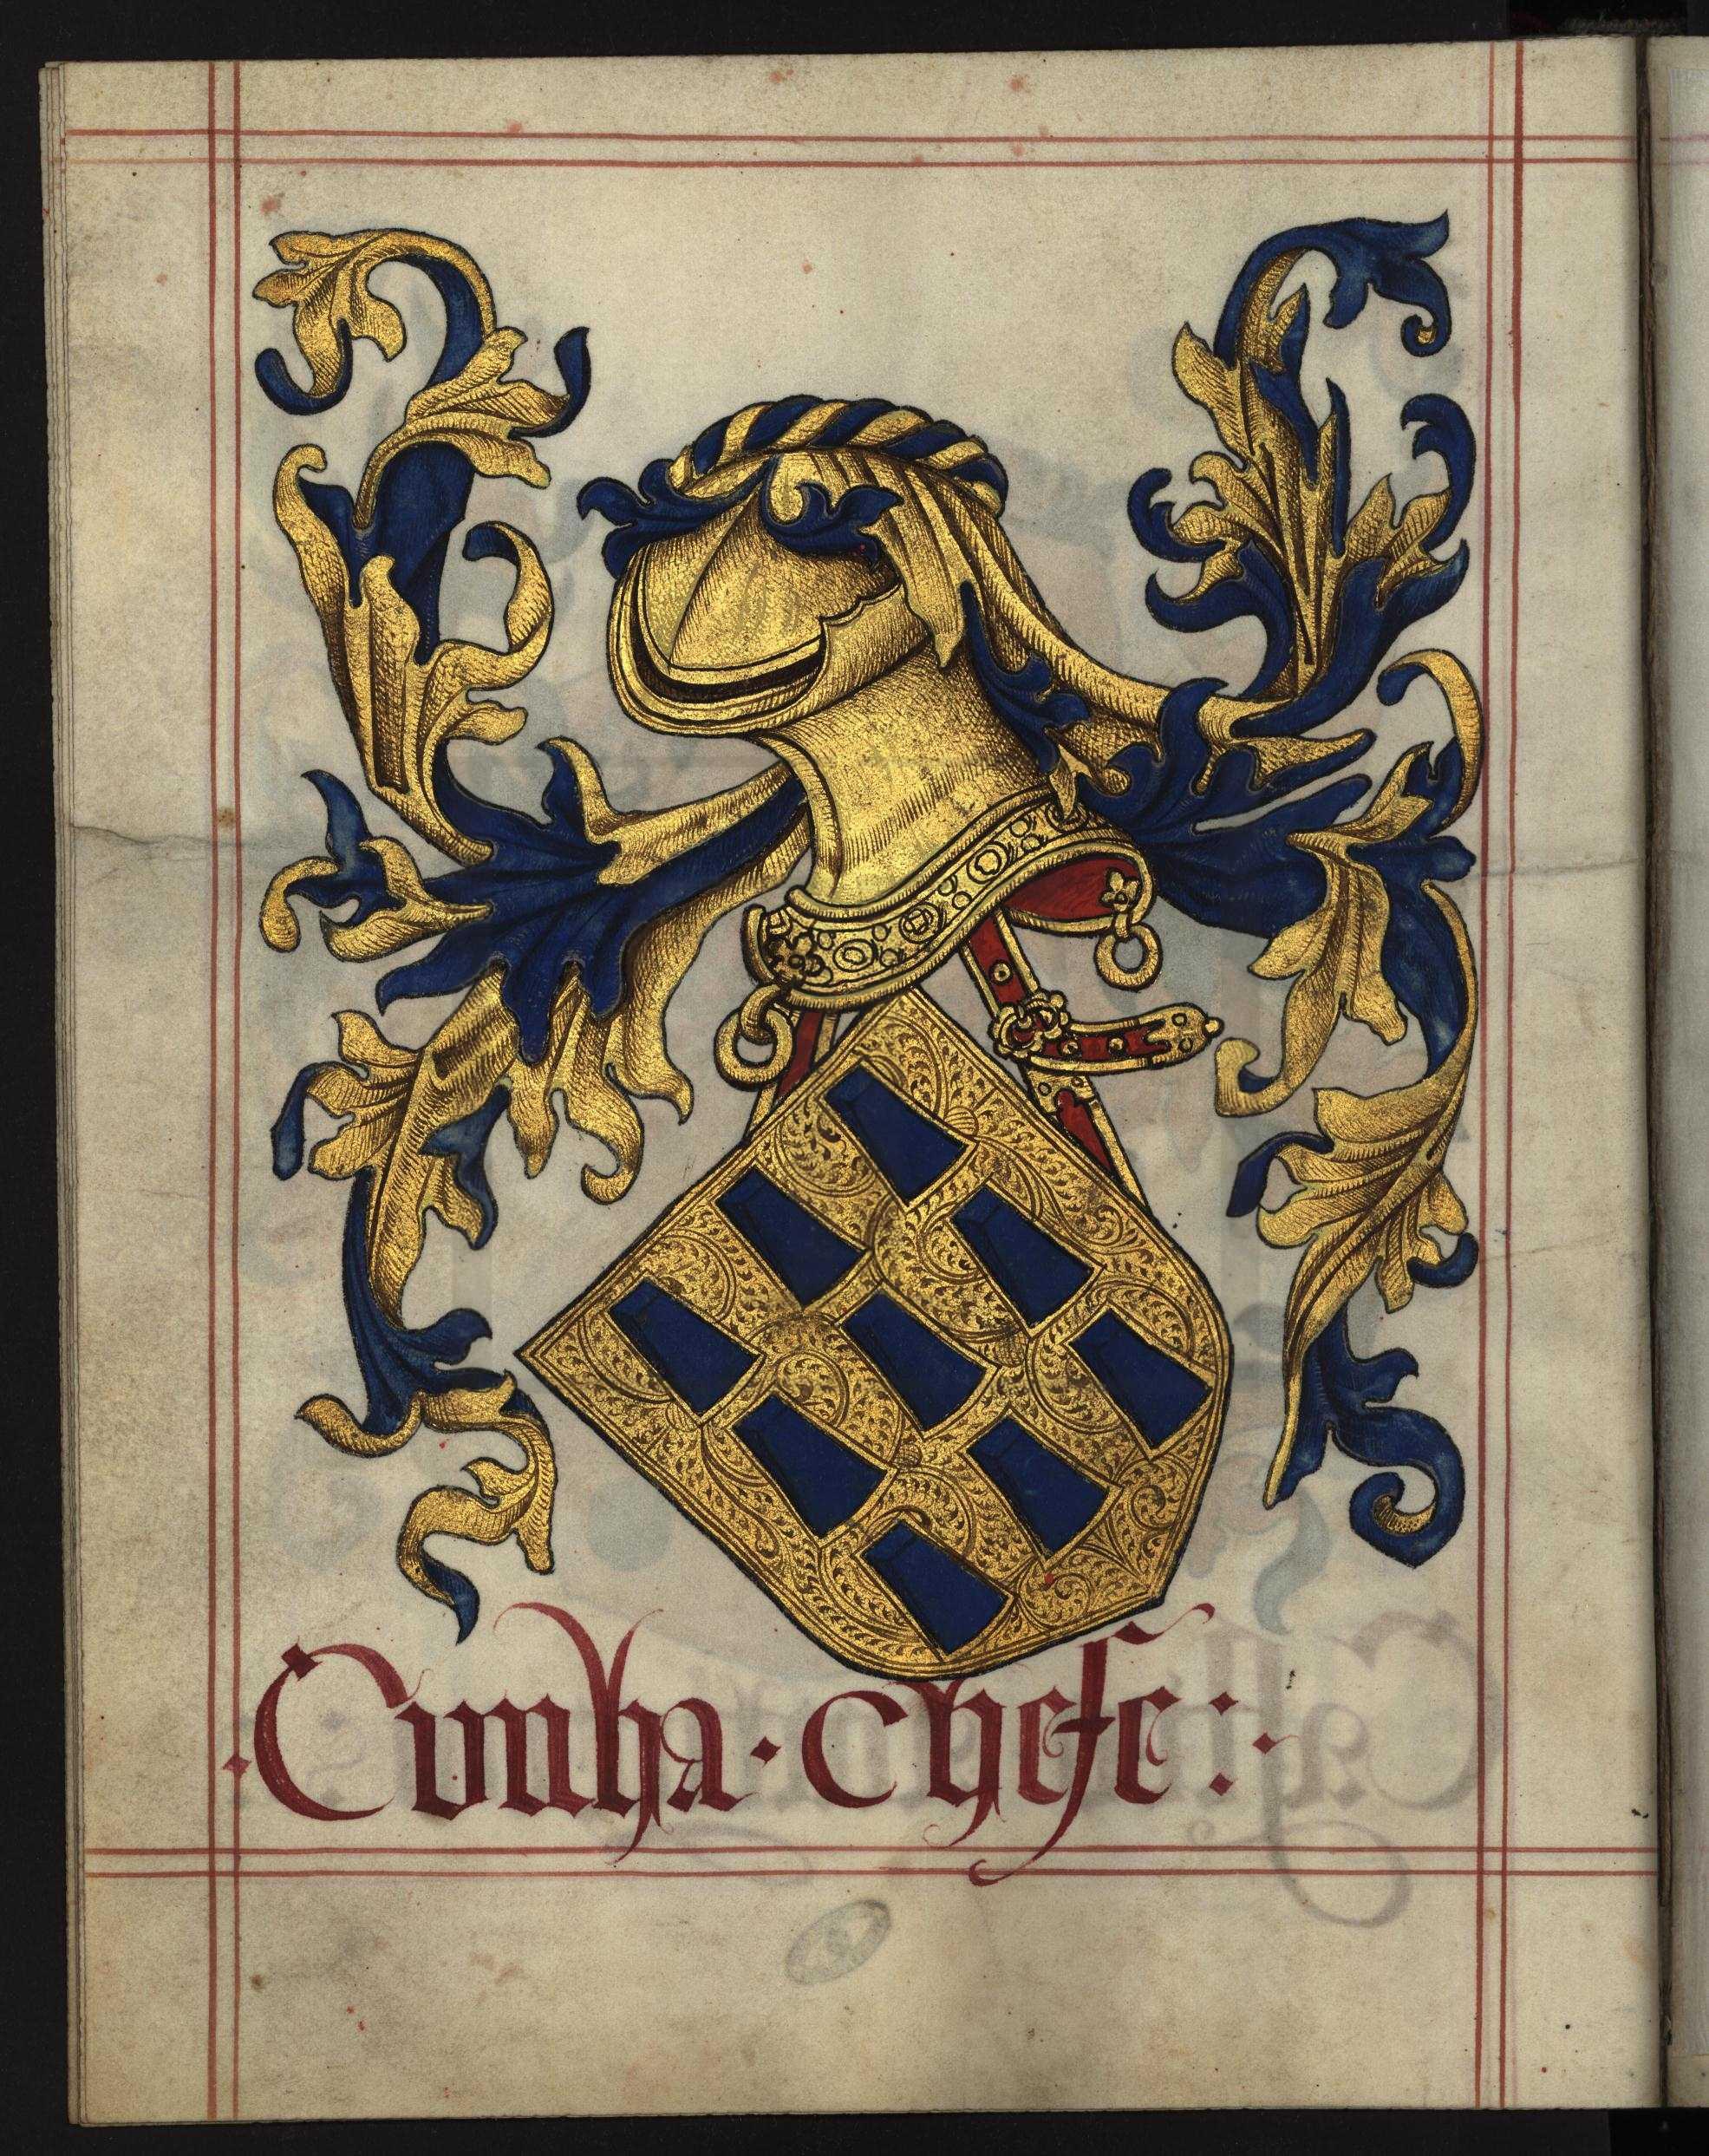 ·Cunha · Chefe :·